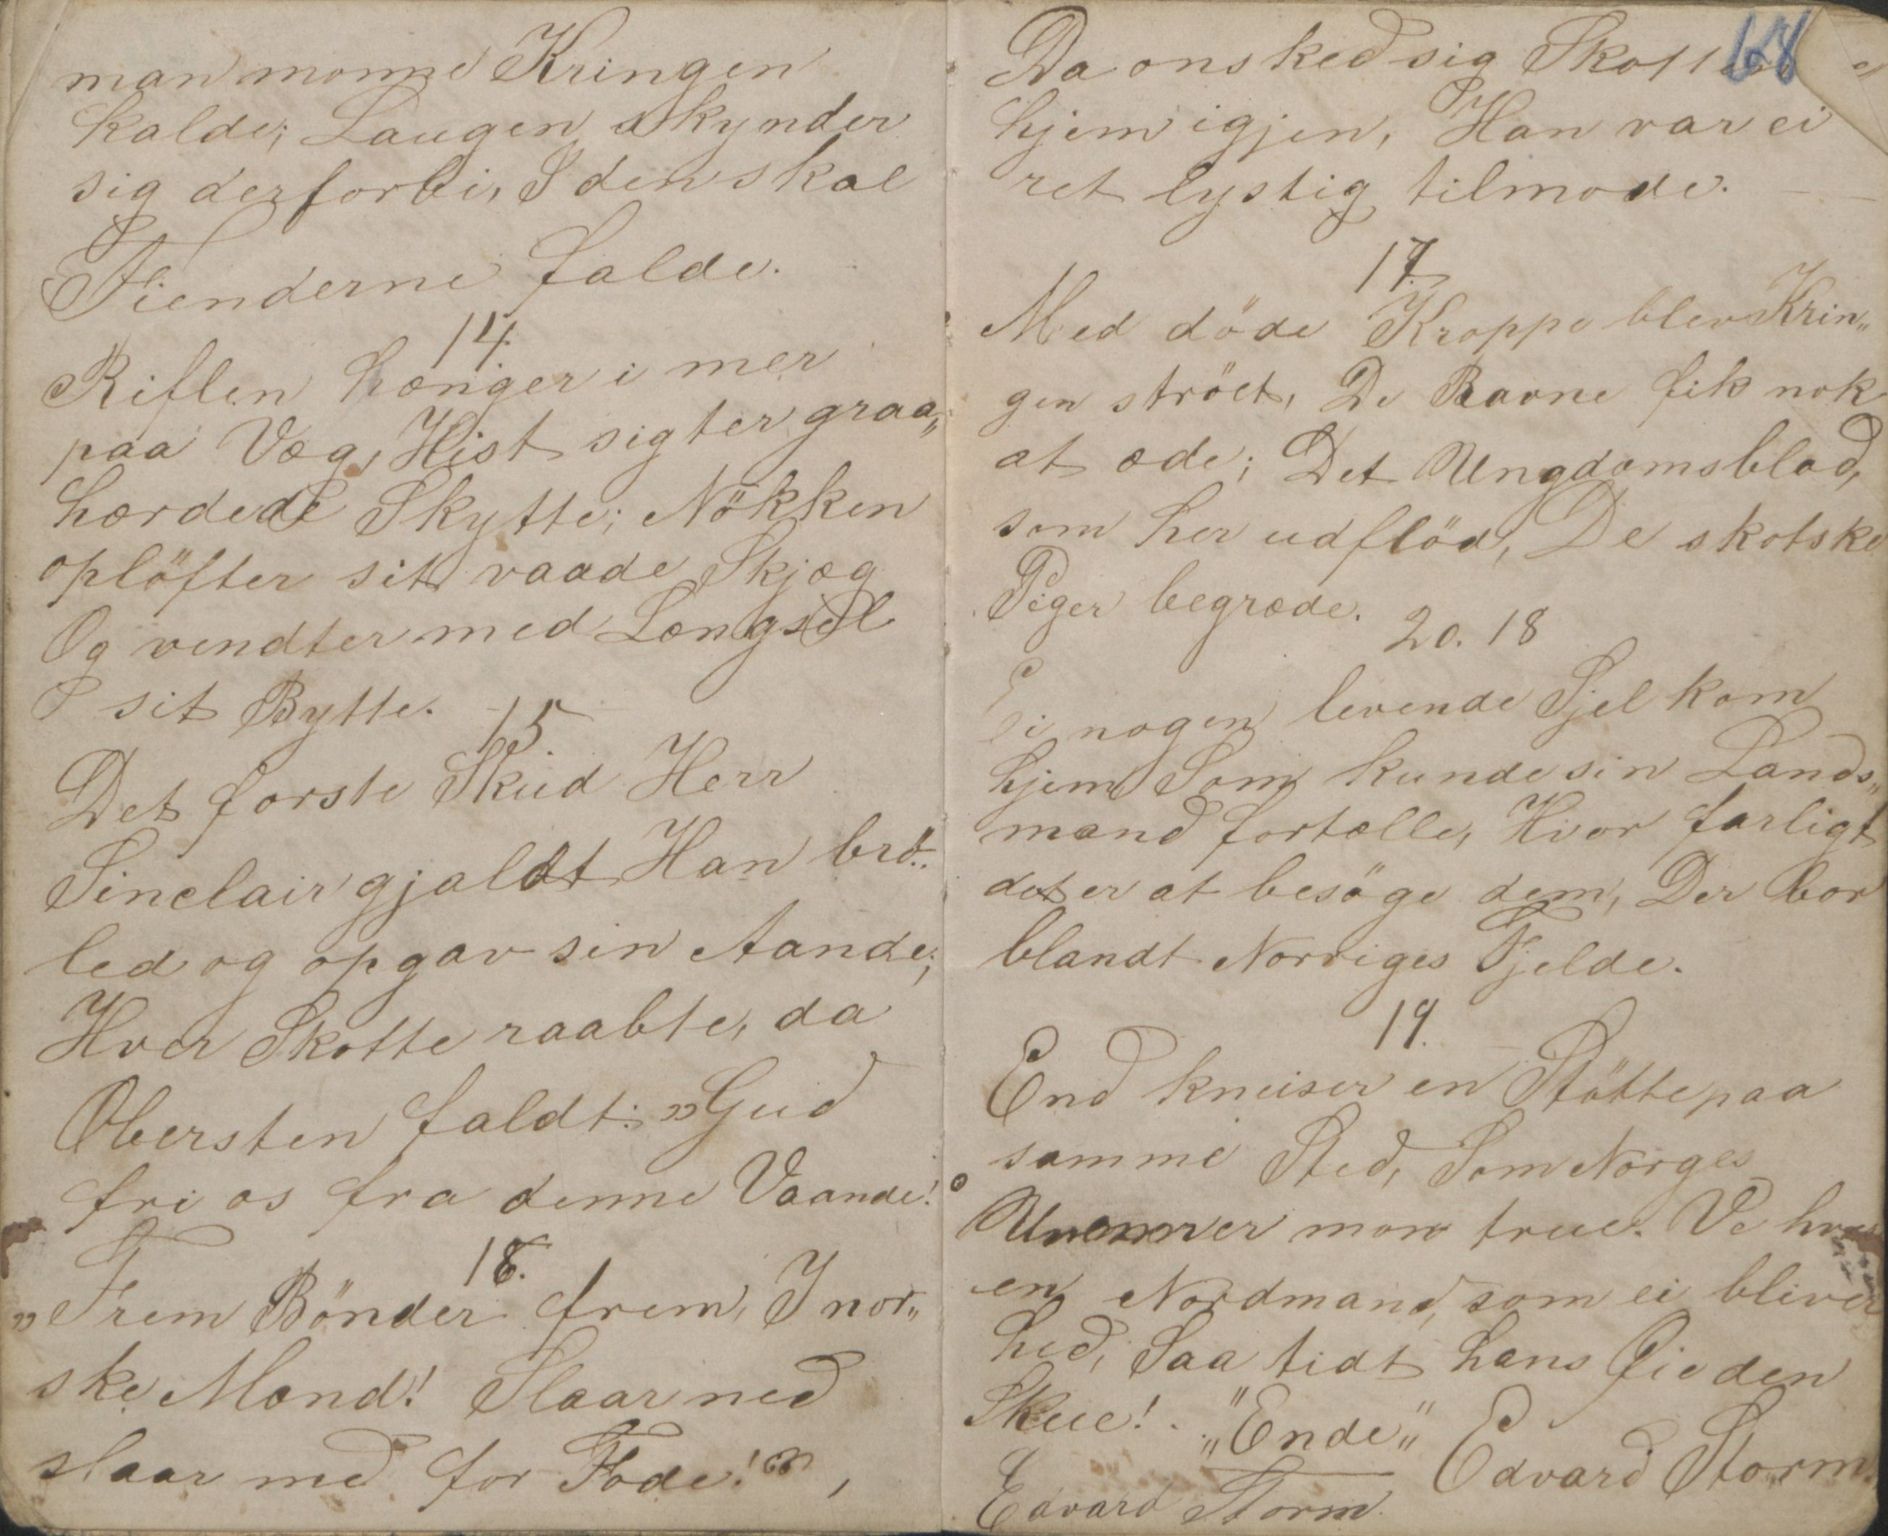 man monne Kringen
kalde; Laugen skynder
sig derforbi, I den skal
Fienderne falde.
14.
Riflen hænger i mer
paa Væg, Hist sigter graa„
hærdede Skytte; Nökken
oplöfter sit vaade Skjæg
Og vendter med Længsel
sit Bytte.
15.
Det forste Skud Herr
Sinclair gjaldt Han brö„
led og opgav sin Aande;
Hver Skotte raabte, da
Obersten faldt: „Gud
fri os fra denne Vaande!
16.
„Frem Bönder frem, I nor„
ske Mænd! Slaar ned
slaar ned for Fode!“,
68
Da onsked sig Skotten
hjem igjen, Han var ei
ret lystig tilmode.
17.
Med döde Kroppe blev Krin„
gen ströet, De Ravne fik nok
at æde; Det Ungdomsblod,
som her udflöd, De skotske
Piger begræde.
20. 18
Ei nogen levende Sjel kom
hjem Som kunde sin Lands„
mand fortælle, Hvor farligt
det er at besöge dem, Der bor
blandt Norriges Fjelde.
19.
End kneiser en Stötte paa
samme Sted, Som Norges
Uvenner mon true. Ve hver
en Nordmand, som ei bliver
hed, Saa tidt hans Öie den
Skue! „Ende“
Edvard Storm
Edvard Storm.